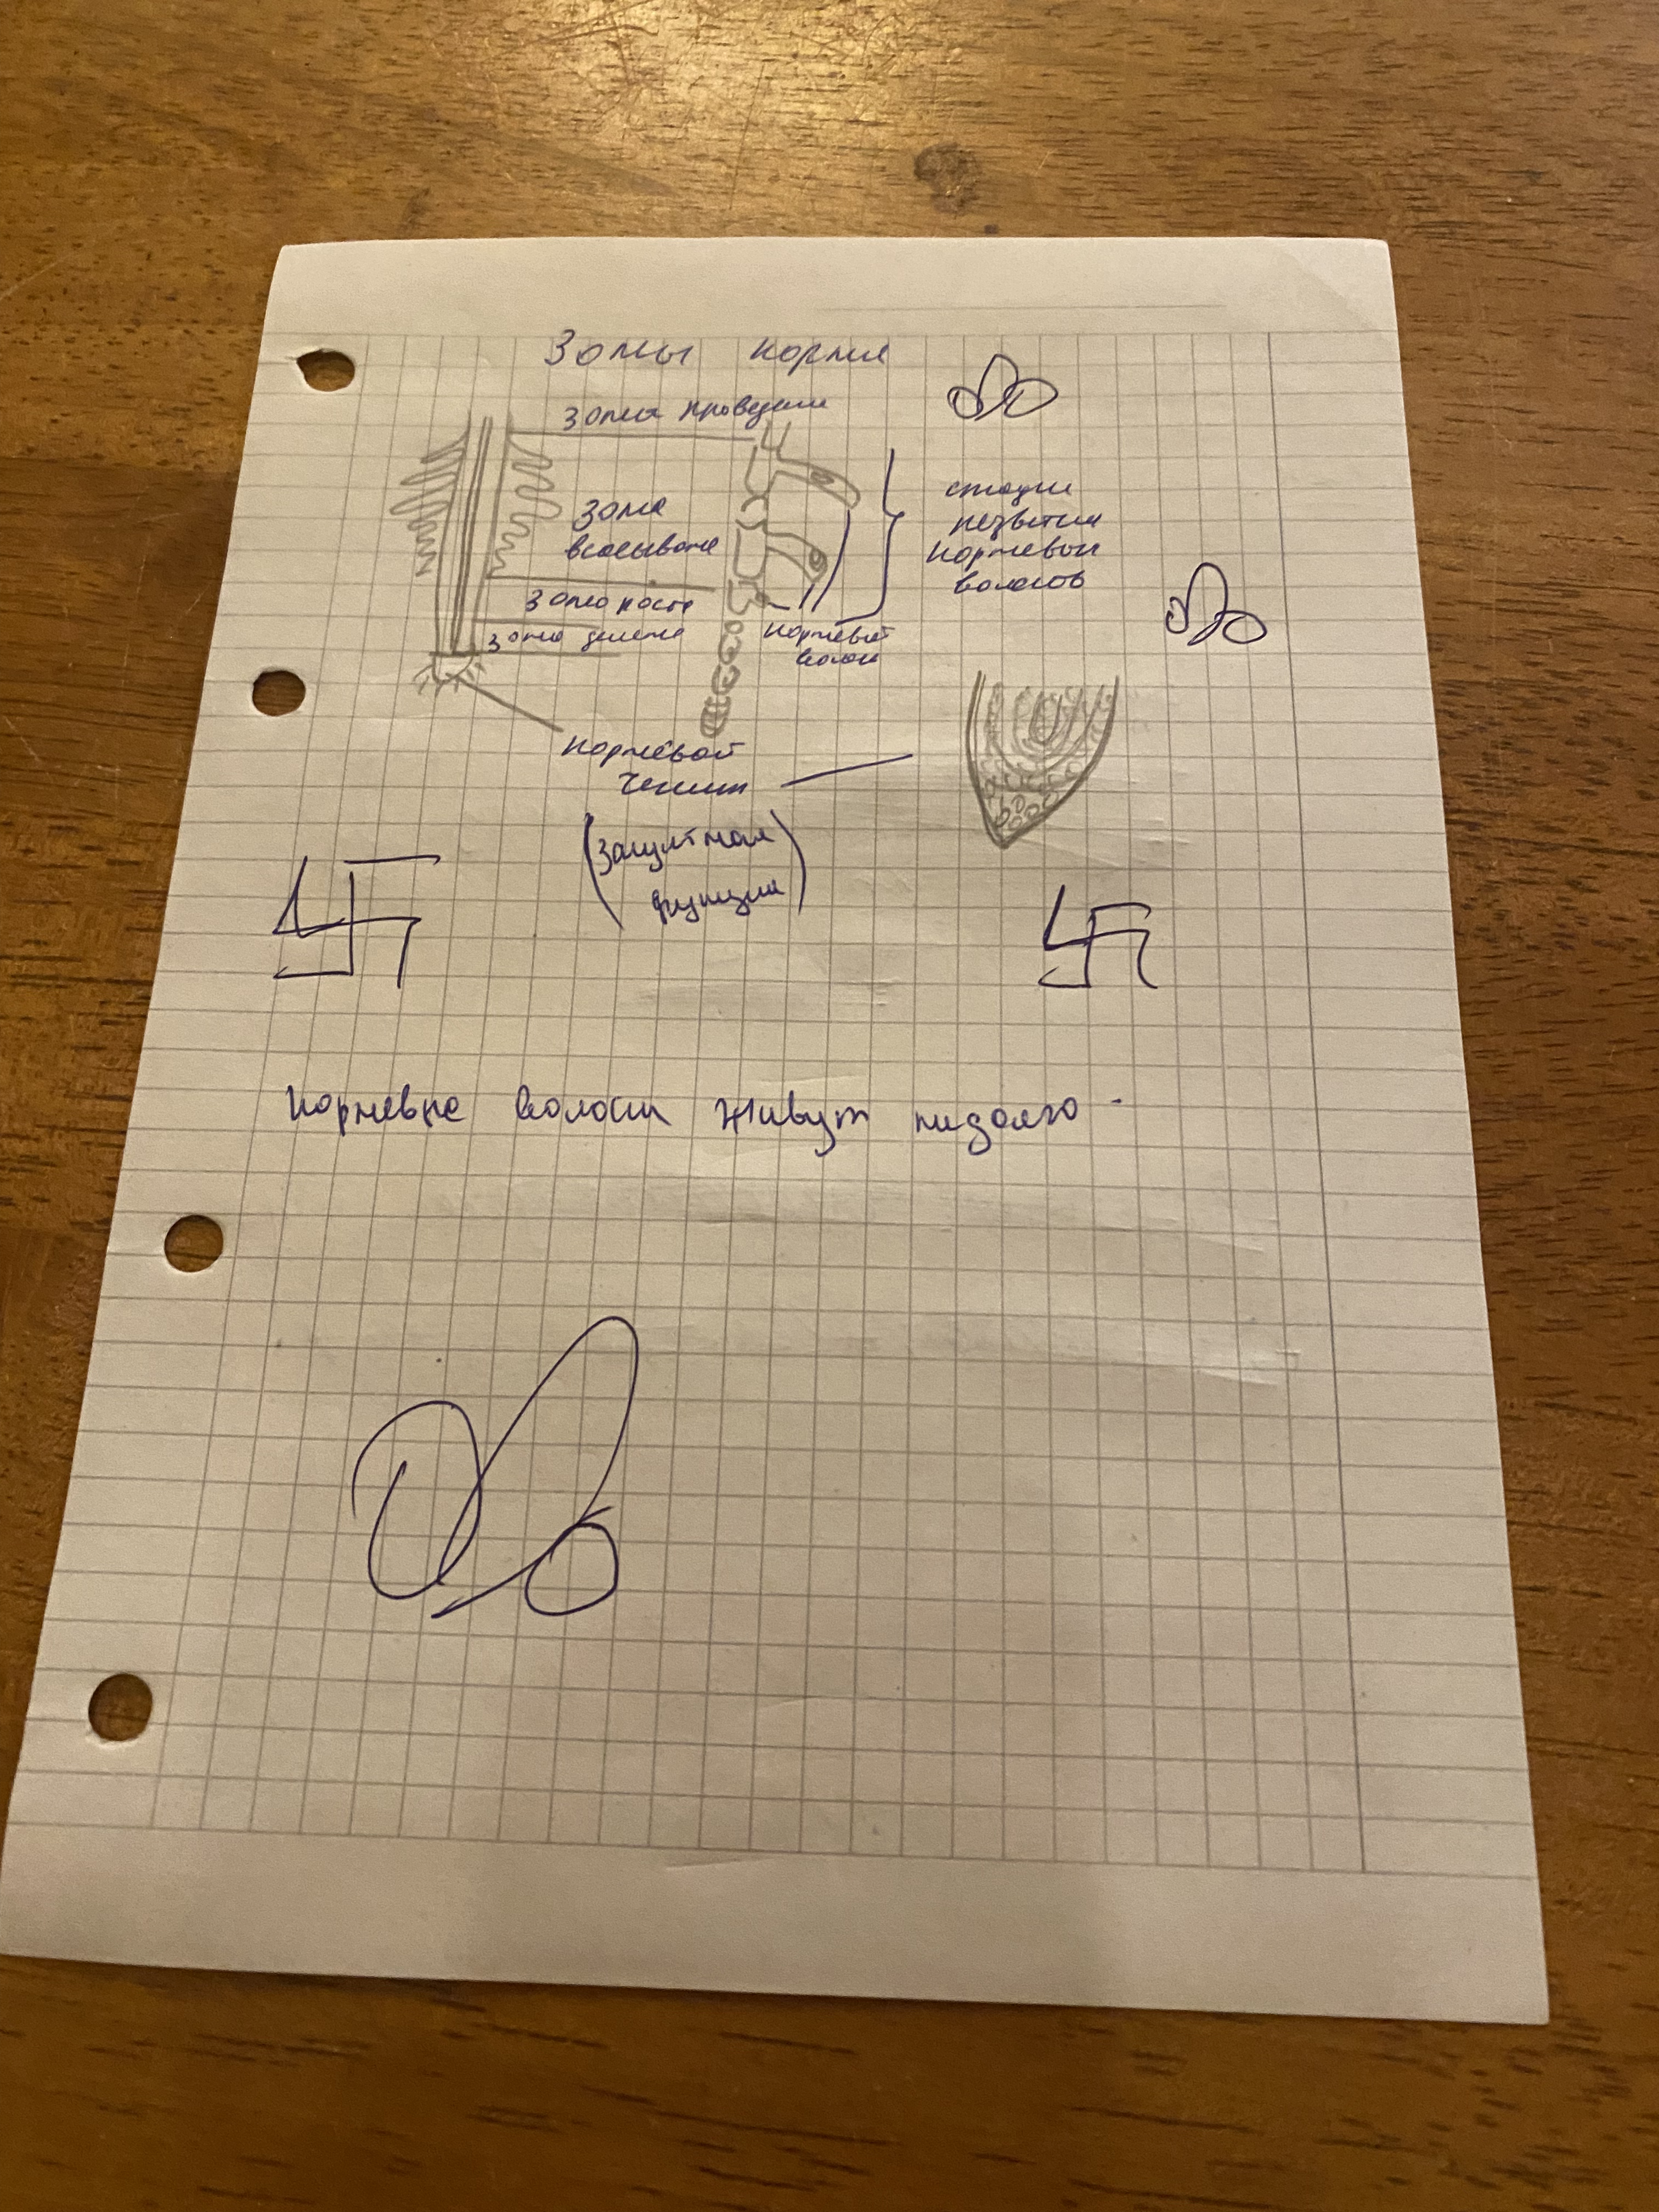 Зоны корня
зона проведения
зона
всасывания
зона роста
зона деления
стадии
развития
корневых
волосков
корневой
волосок
корневой
чехлик
(защитная
функция)
Корневые волоски живут недолго.